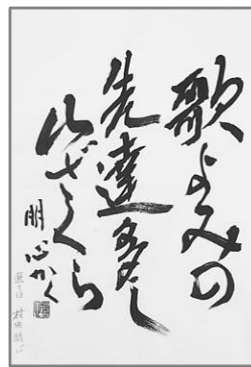 歌よみの
先達多し
山ざくら
朋心かく